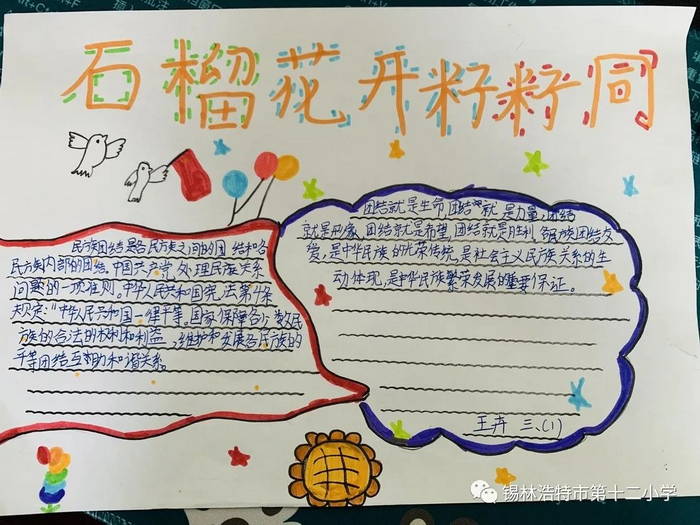 石榴花开籽籽同
民族团结是各民族之间的团结和各
民族内部的团结。中国共产党处理民族关系
问题的一项准则。中华人民共和国宪法第4条
规定:"中华人民共和国一律平等。国家保障各少数民
族的合法的权利和利益,维护和发展各民族的
平等团结互助和谐关系。
团结就是生命,团结就是力量,团结
就是形象,团结就是希望,团结就是胜利,各民族团结友
爱,是中华民族的光荣传统,是社会主义民族关系的生
动体现,是中华民族繁荣发展的重要保证。
王卉 三、(1)
锡林浩特市第十二小学